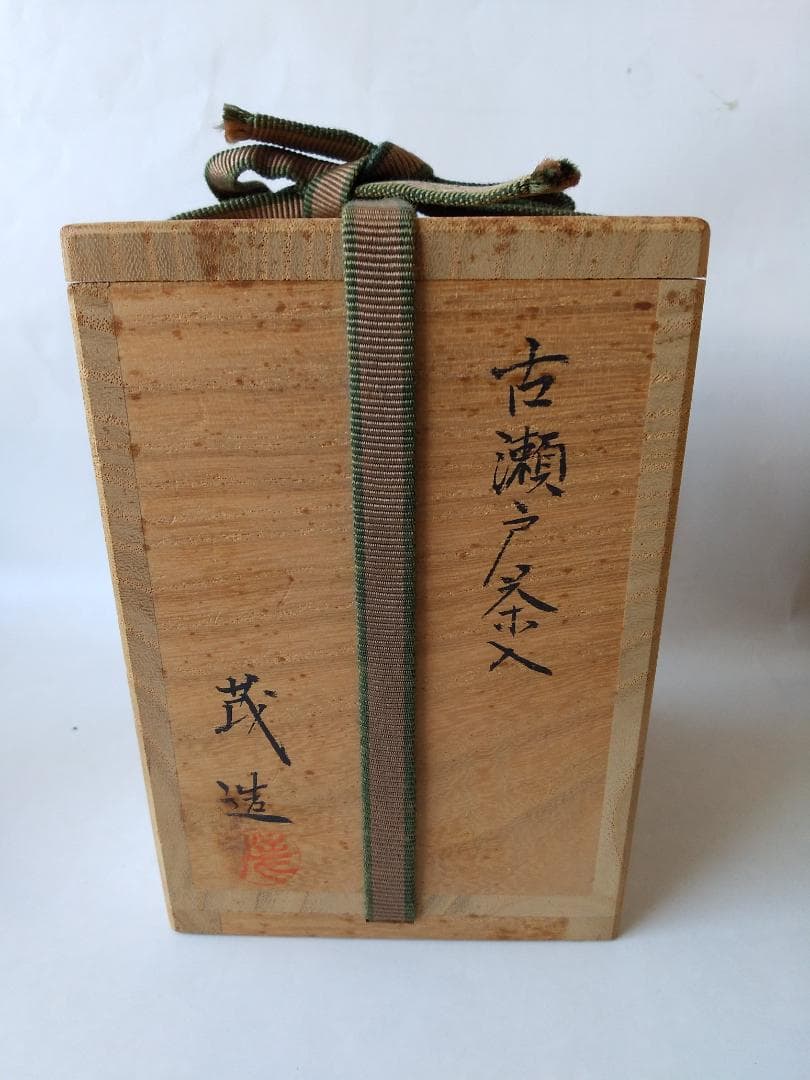 古瀬戸茶入
茂造